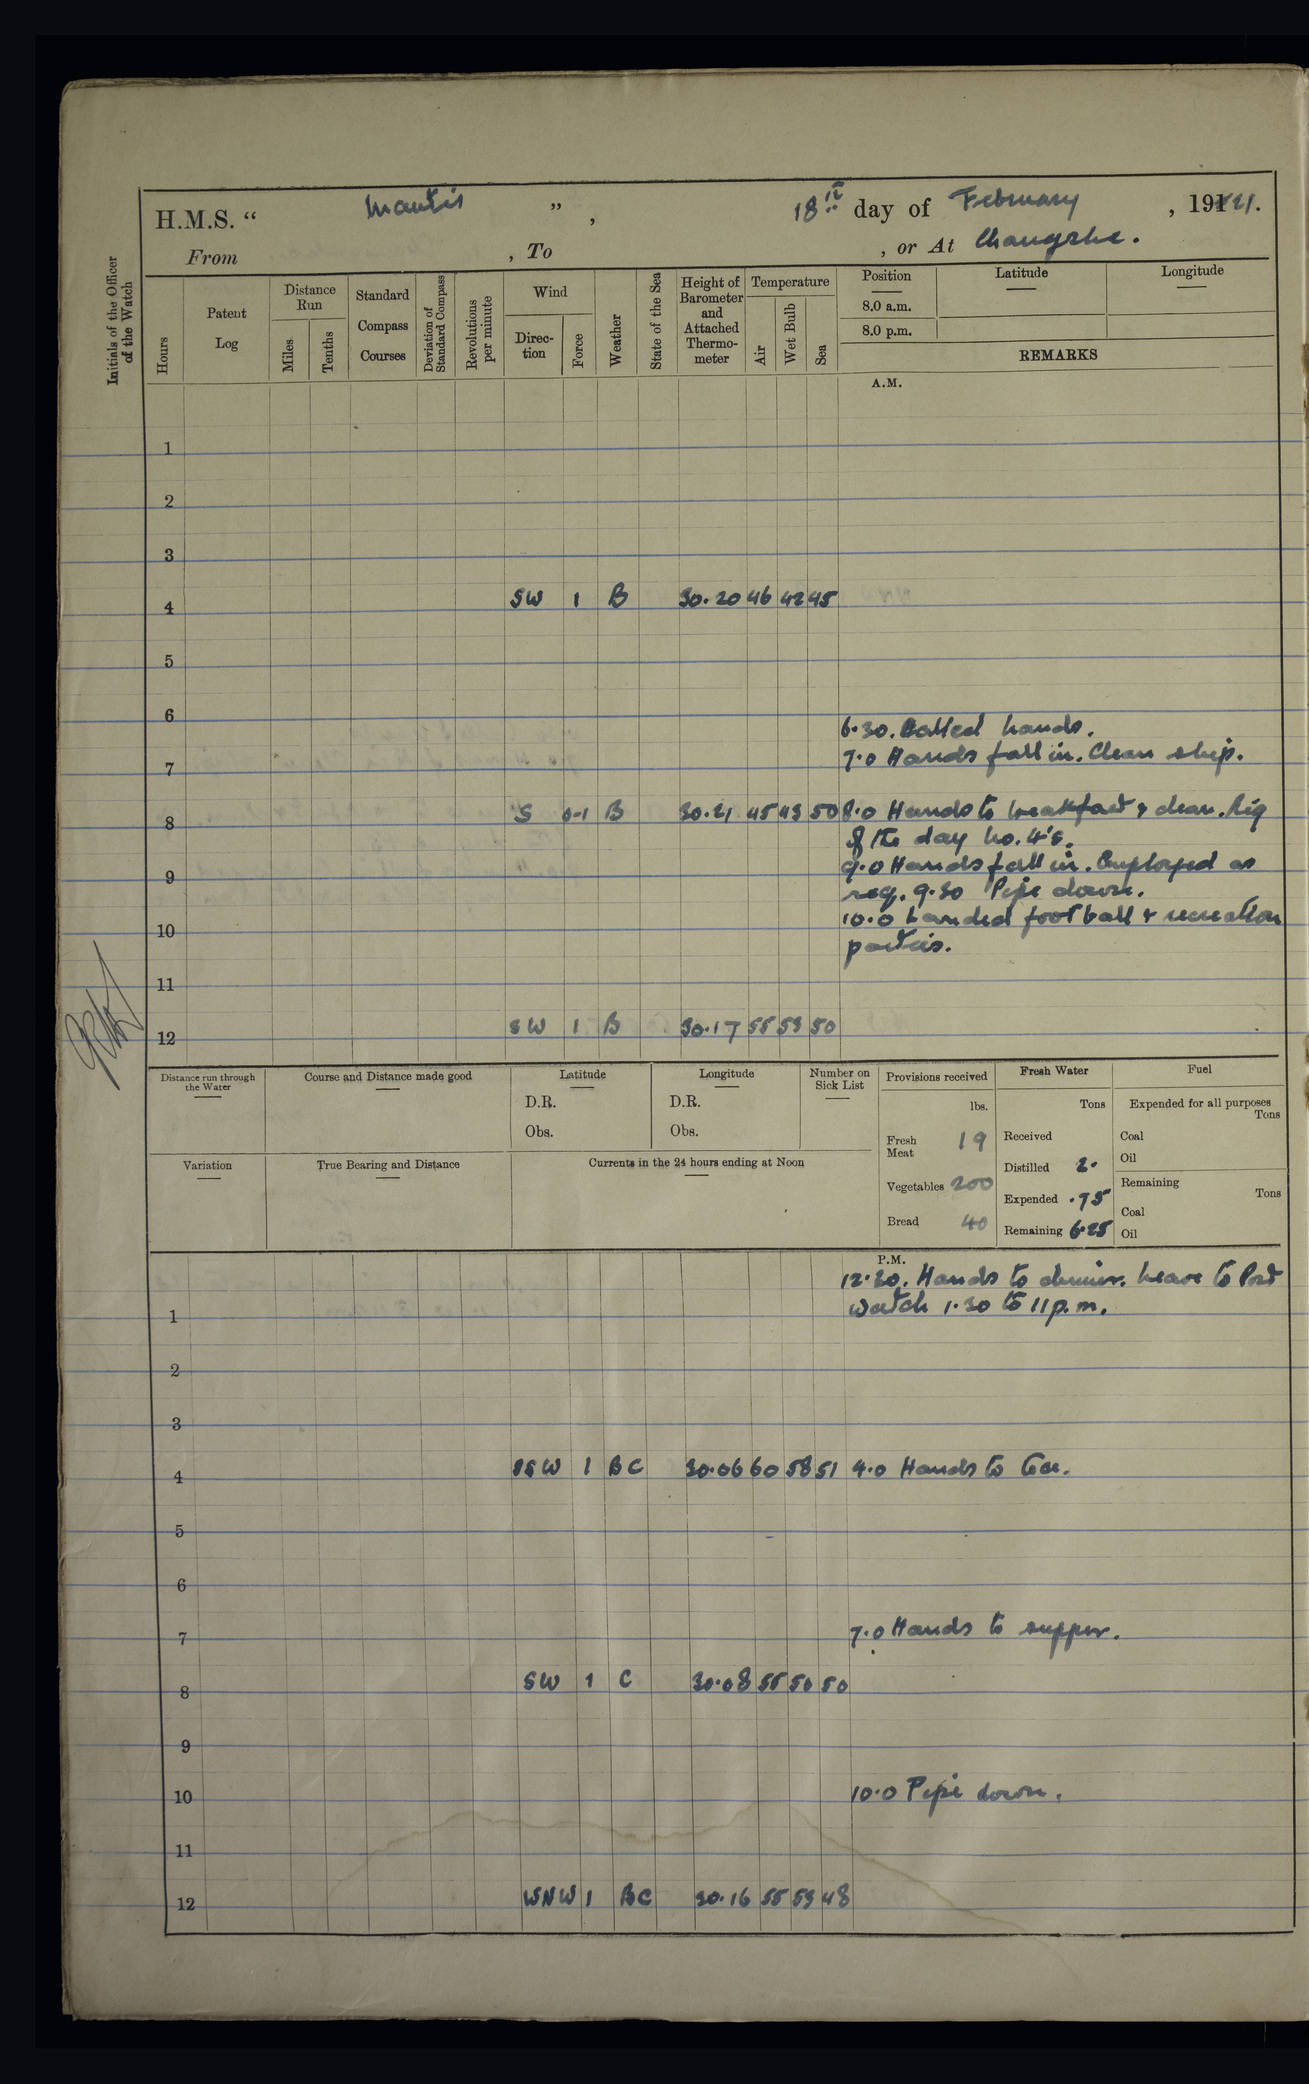 H.M.S. “ Mantis ” , 18th day of February , 1921.
From , To , or At Changsha.
Initials of the Officer of the Watch
Hours
Patent Log
Distance Run
Miles
Tenths
Standard Compass Courses
Deviation of Standard Compass
Revolutions per minute
Wind
Direc-tion
Force
Weather
State of the Sea
Height of Barometer and Attached Thermo-meter
Temperature
Air
Wet Bulb
Sea
Position
Latitude
Longitude
8.0 a.m.
8.0 p.m.
REMARKS
A.M.
1
2
3
4 SW 1 B 30.20 46 42 45
5
6
6.30. Called hands.
7 7.0 Hands fall in. Clean ship.
8 S 0-1 B 30.21 45 43 50 8.0 Hands to breakfast & clean. Rig
of the day No. 4's.
9 9.0 Hands fall in. Employed as
req. 9.30 Pipe down.
10 10.0 Landed football & recreation
parties.
11
12 SW 1 B 30.17 55 53 50
Distance run through the Water
Course and Distance made good
Latitude
D.R.
Obs.
Longitude
D.R.
Obs.
Number on Sick List
Provisions received
lbs.
Fresh Meat 19
Vegetables 200
Bread 40
Fresh Water
Tons
Received
Distilled 2.
Expended .75
Remaining 6.25
Fuel
Expended for all purposes
Tons
Coal
Oil
Remaining
Tons
Coal
Oil
Variation
True Bearing and Distance
Currents in the 24 hours ending at Noon
P.M.
12.30. Hands to dinner. Leave to Port
1 watch 1.30 to 11 p.m.
2
3
4 SSW 1 BC 30.06 60 58 51 4.0 Hands to tea.
5
6
7 7.0 Hands to supper.
8 SW 1 C 30.08 55 50 50
9
10 10.0 Pipe down.
11
12 WNW 1 BC 30.16 55 53 48